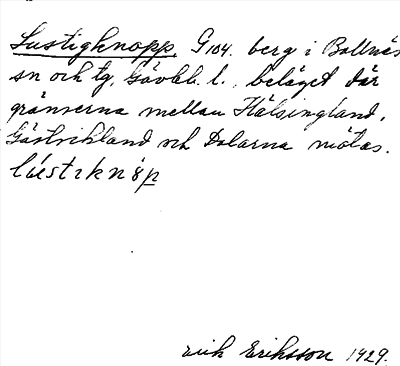 Lustigknopp, G104. berg i Bollnäs
sn och tg, Gävlb. l., beläget där
gränserna mellan Hälsingland,
Gästrikland och Dalarna mötas.
lúestıknòp
Erik Eriksson 1929.